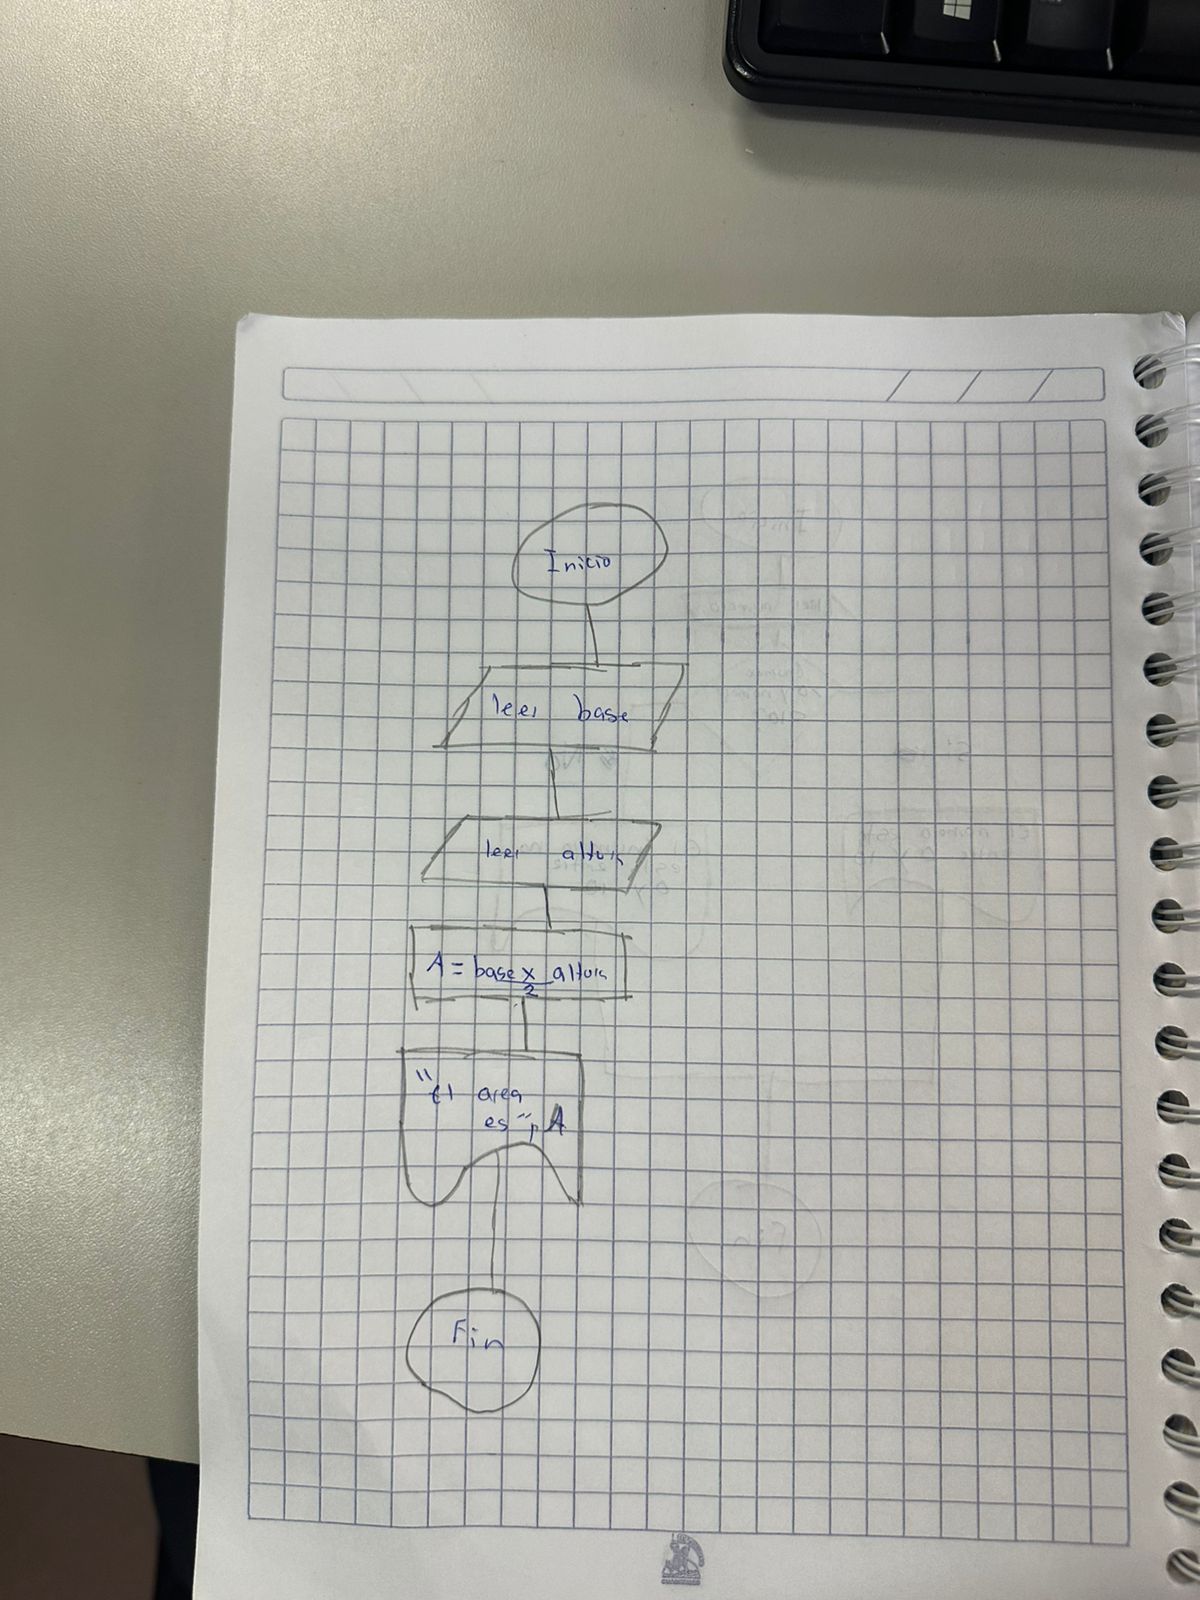 Inicio
leer base
leer altura
A = base x altura
2
"El area
es", A
Fin